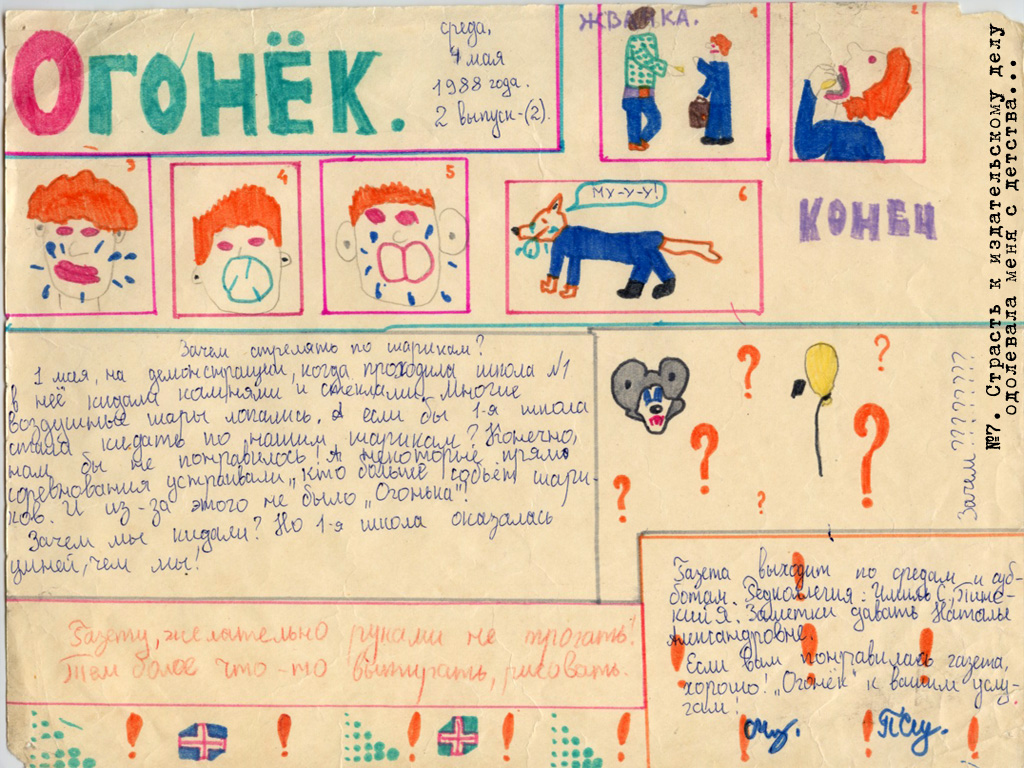 ОГОНЁК.
среда,
4 мая
1988 года.
2 выпуск-(2).
ЖВАЧКА.
1
2
3
4
5
6
МУ-У-У!
КОНЕЦ
Зачем стрелять по шарикам?
1 мая, на демонстрации, когда проходила школа №1
в неё кидали камнями и стеклами. Многие
воздушные шары лопались. А если бы 1-я школа
стала кидать по нашим шарикам? Конечно,
нам бы не понравилось! А некоторые прямо
соревнования устраивали „кто больше собьёт шари-
ков. И из-за этого не было „Огонька"!
Зачем мы кидали? Но 1-я школа оказалась
умней, чем мы!
? ? ? ? ? ?
Зачем ?????????
Газету, желательно руками не трогать!
Тем более что-то вытирать, рисовать.
Газета выходит по средам и суб-
ботам. Редколлегия:
Заметки давать Наталье
Александровне.
Если вам понравилась газета,
хорошо! „Огонёк" к вашим услу-
гам!
№7. Страсть к издательскому делу
одолевала меня с детства...